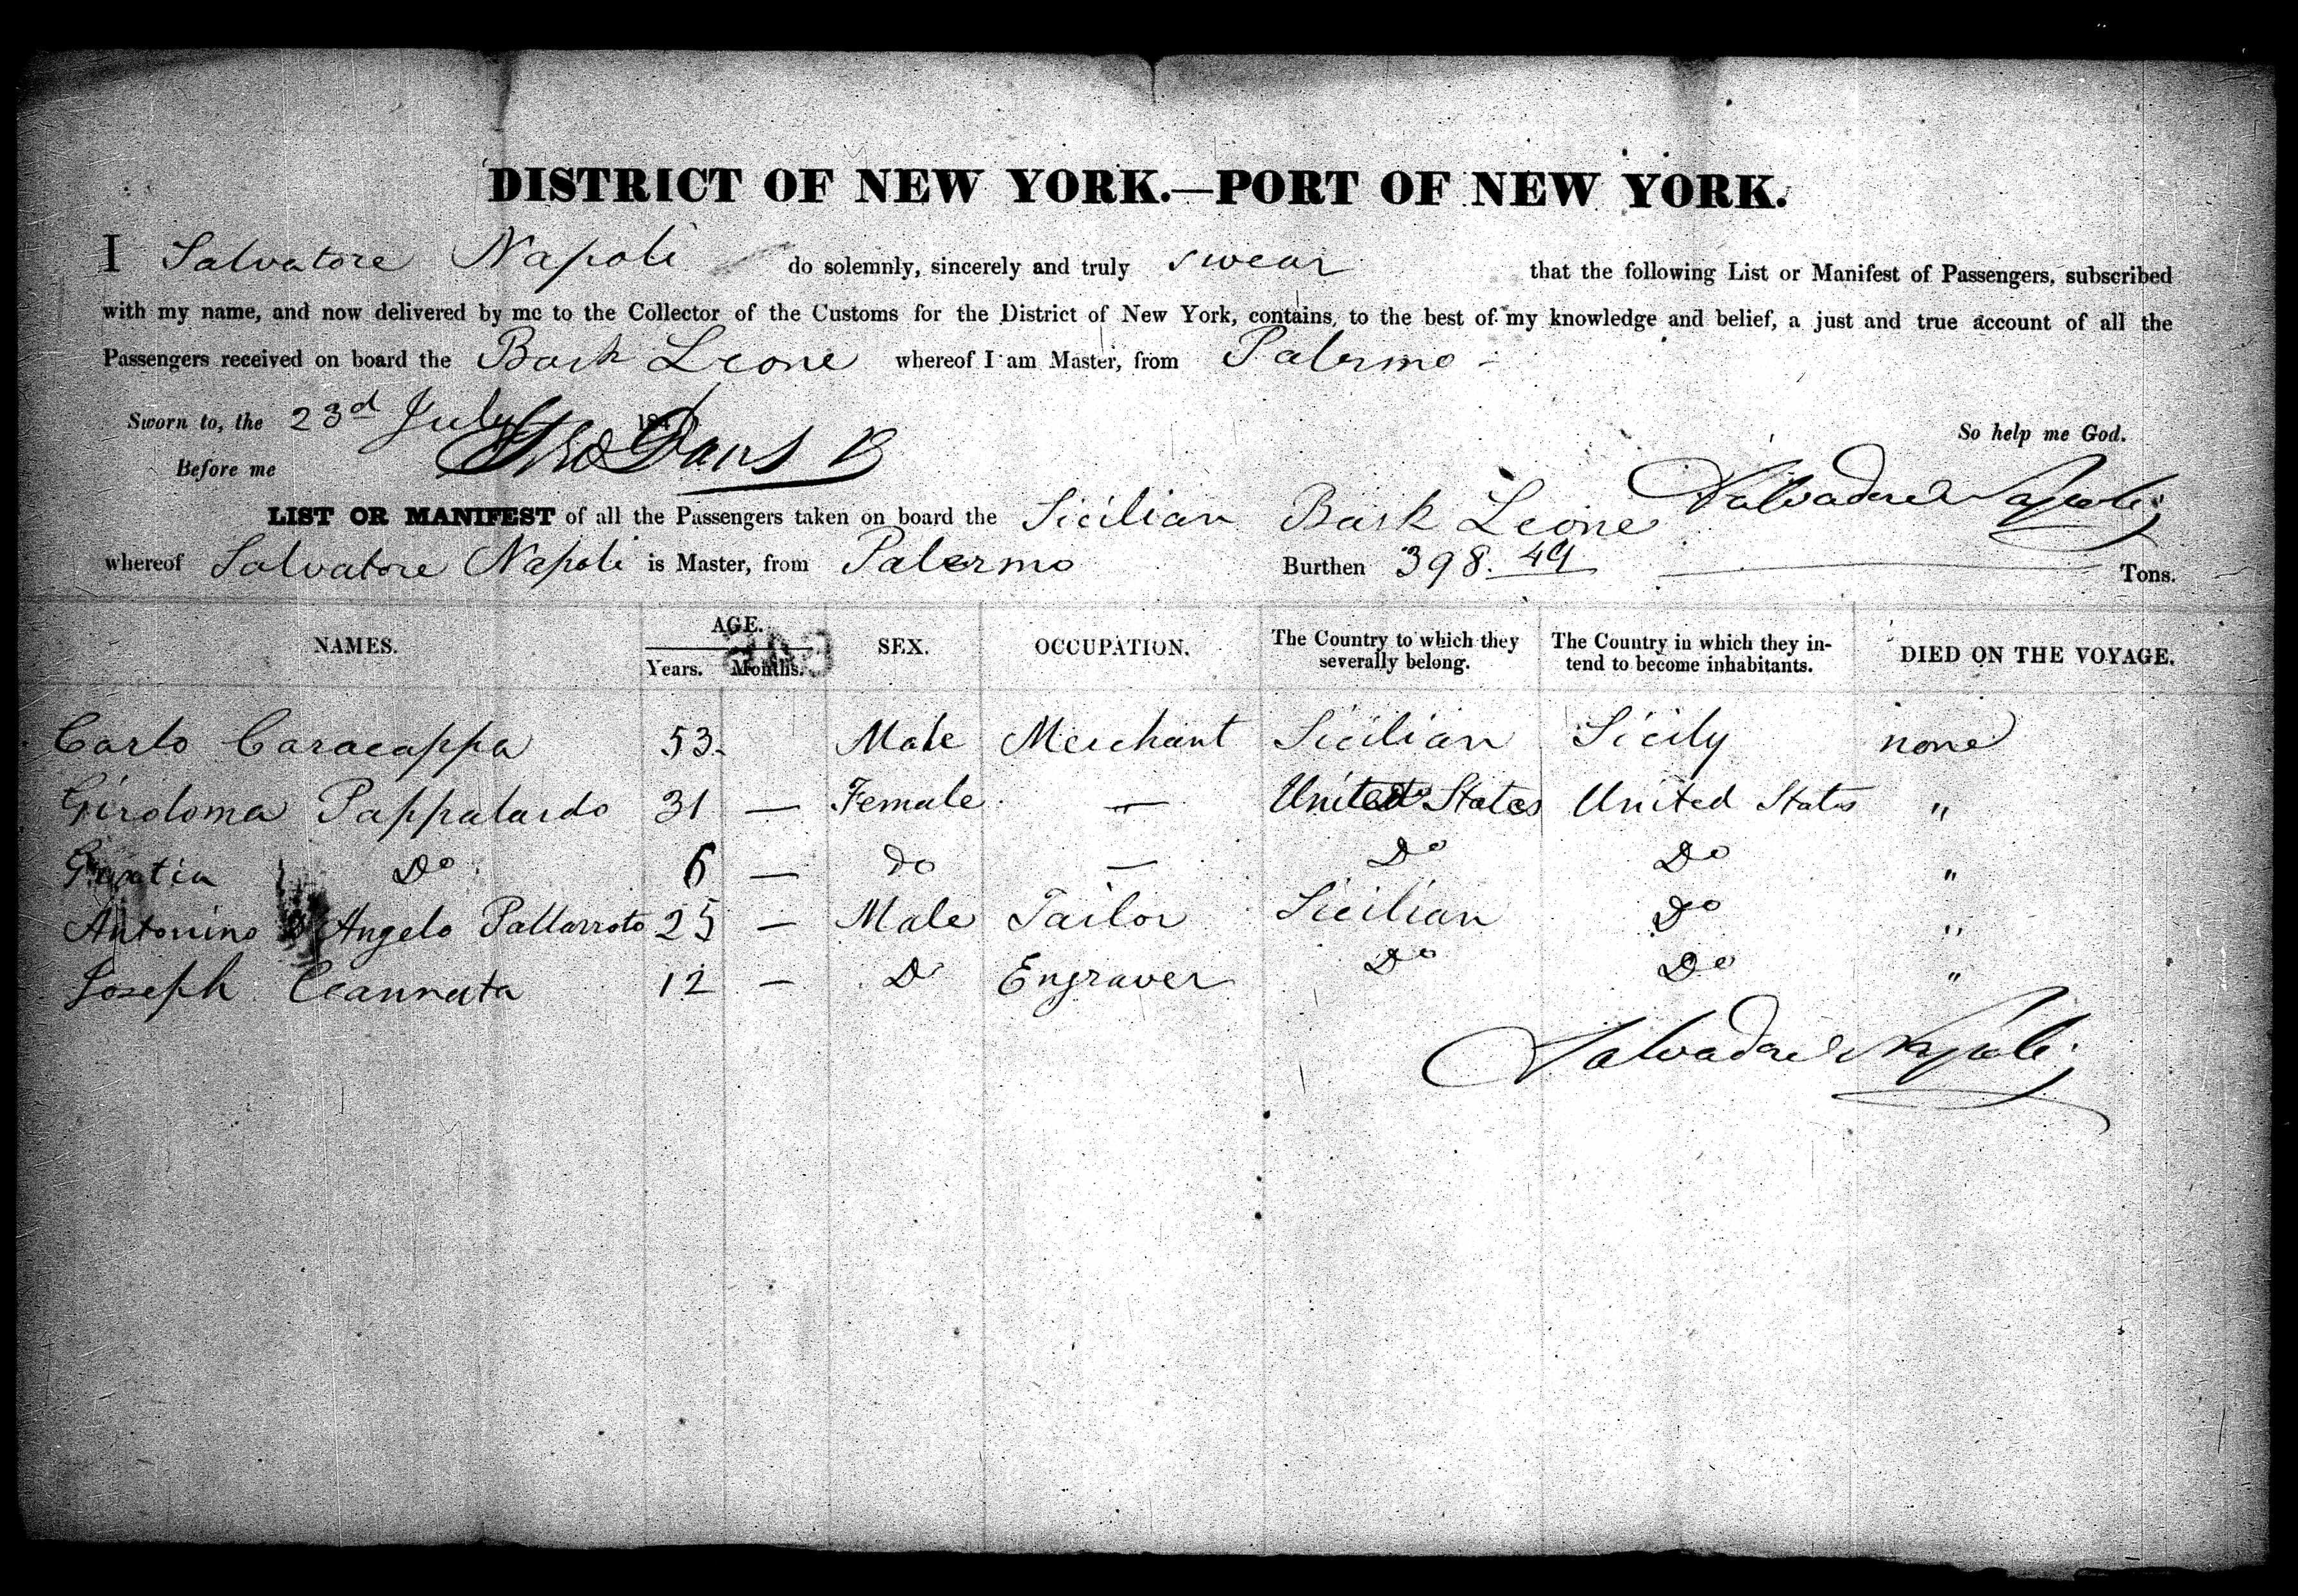 DISTRICT OF NEW YORK.—PORT OF NEW YORK.
I Salvatore Napoli do solemnly, sincerely and truly swear that the following List or Manifest of Passengers, subscribed
with my name, and now delivered by me to the Collector of the Customs for the District of New York, contains, to the best of my knowledge and belief, a just and true account of all the
Passengers received on board the Bark Leone whereof I am Master, from Palermo
Sworn to, the 23d July 184
So help me God.
Before me
Salvadore Napoli
LIST OR MANIFEST of all the Passengers taken on board the Sicilian Bark Leone
whereof Salvatore Napoli is Master, from Palermo Burthen 398. 49 Tons.
NAMES. AGE. Years. Months. SEX. OCCUPATION. The Country to which they severally belong. The Country in which they intend to become inhabitants. DIED ON THE VOYAGE.
Carlo Caracappa 53 Male Merchant Sicilian Sicily none
Giroloma Pappalardo 31 — Female — United States United States "
Do 6 — do — Do Do "
Antonino Angelo Pallarroto 25 — Male Tailor Sicilian Do "
Joseph Cannata 12 — Do Engraver Do Do "
Salvadore Napoli